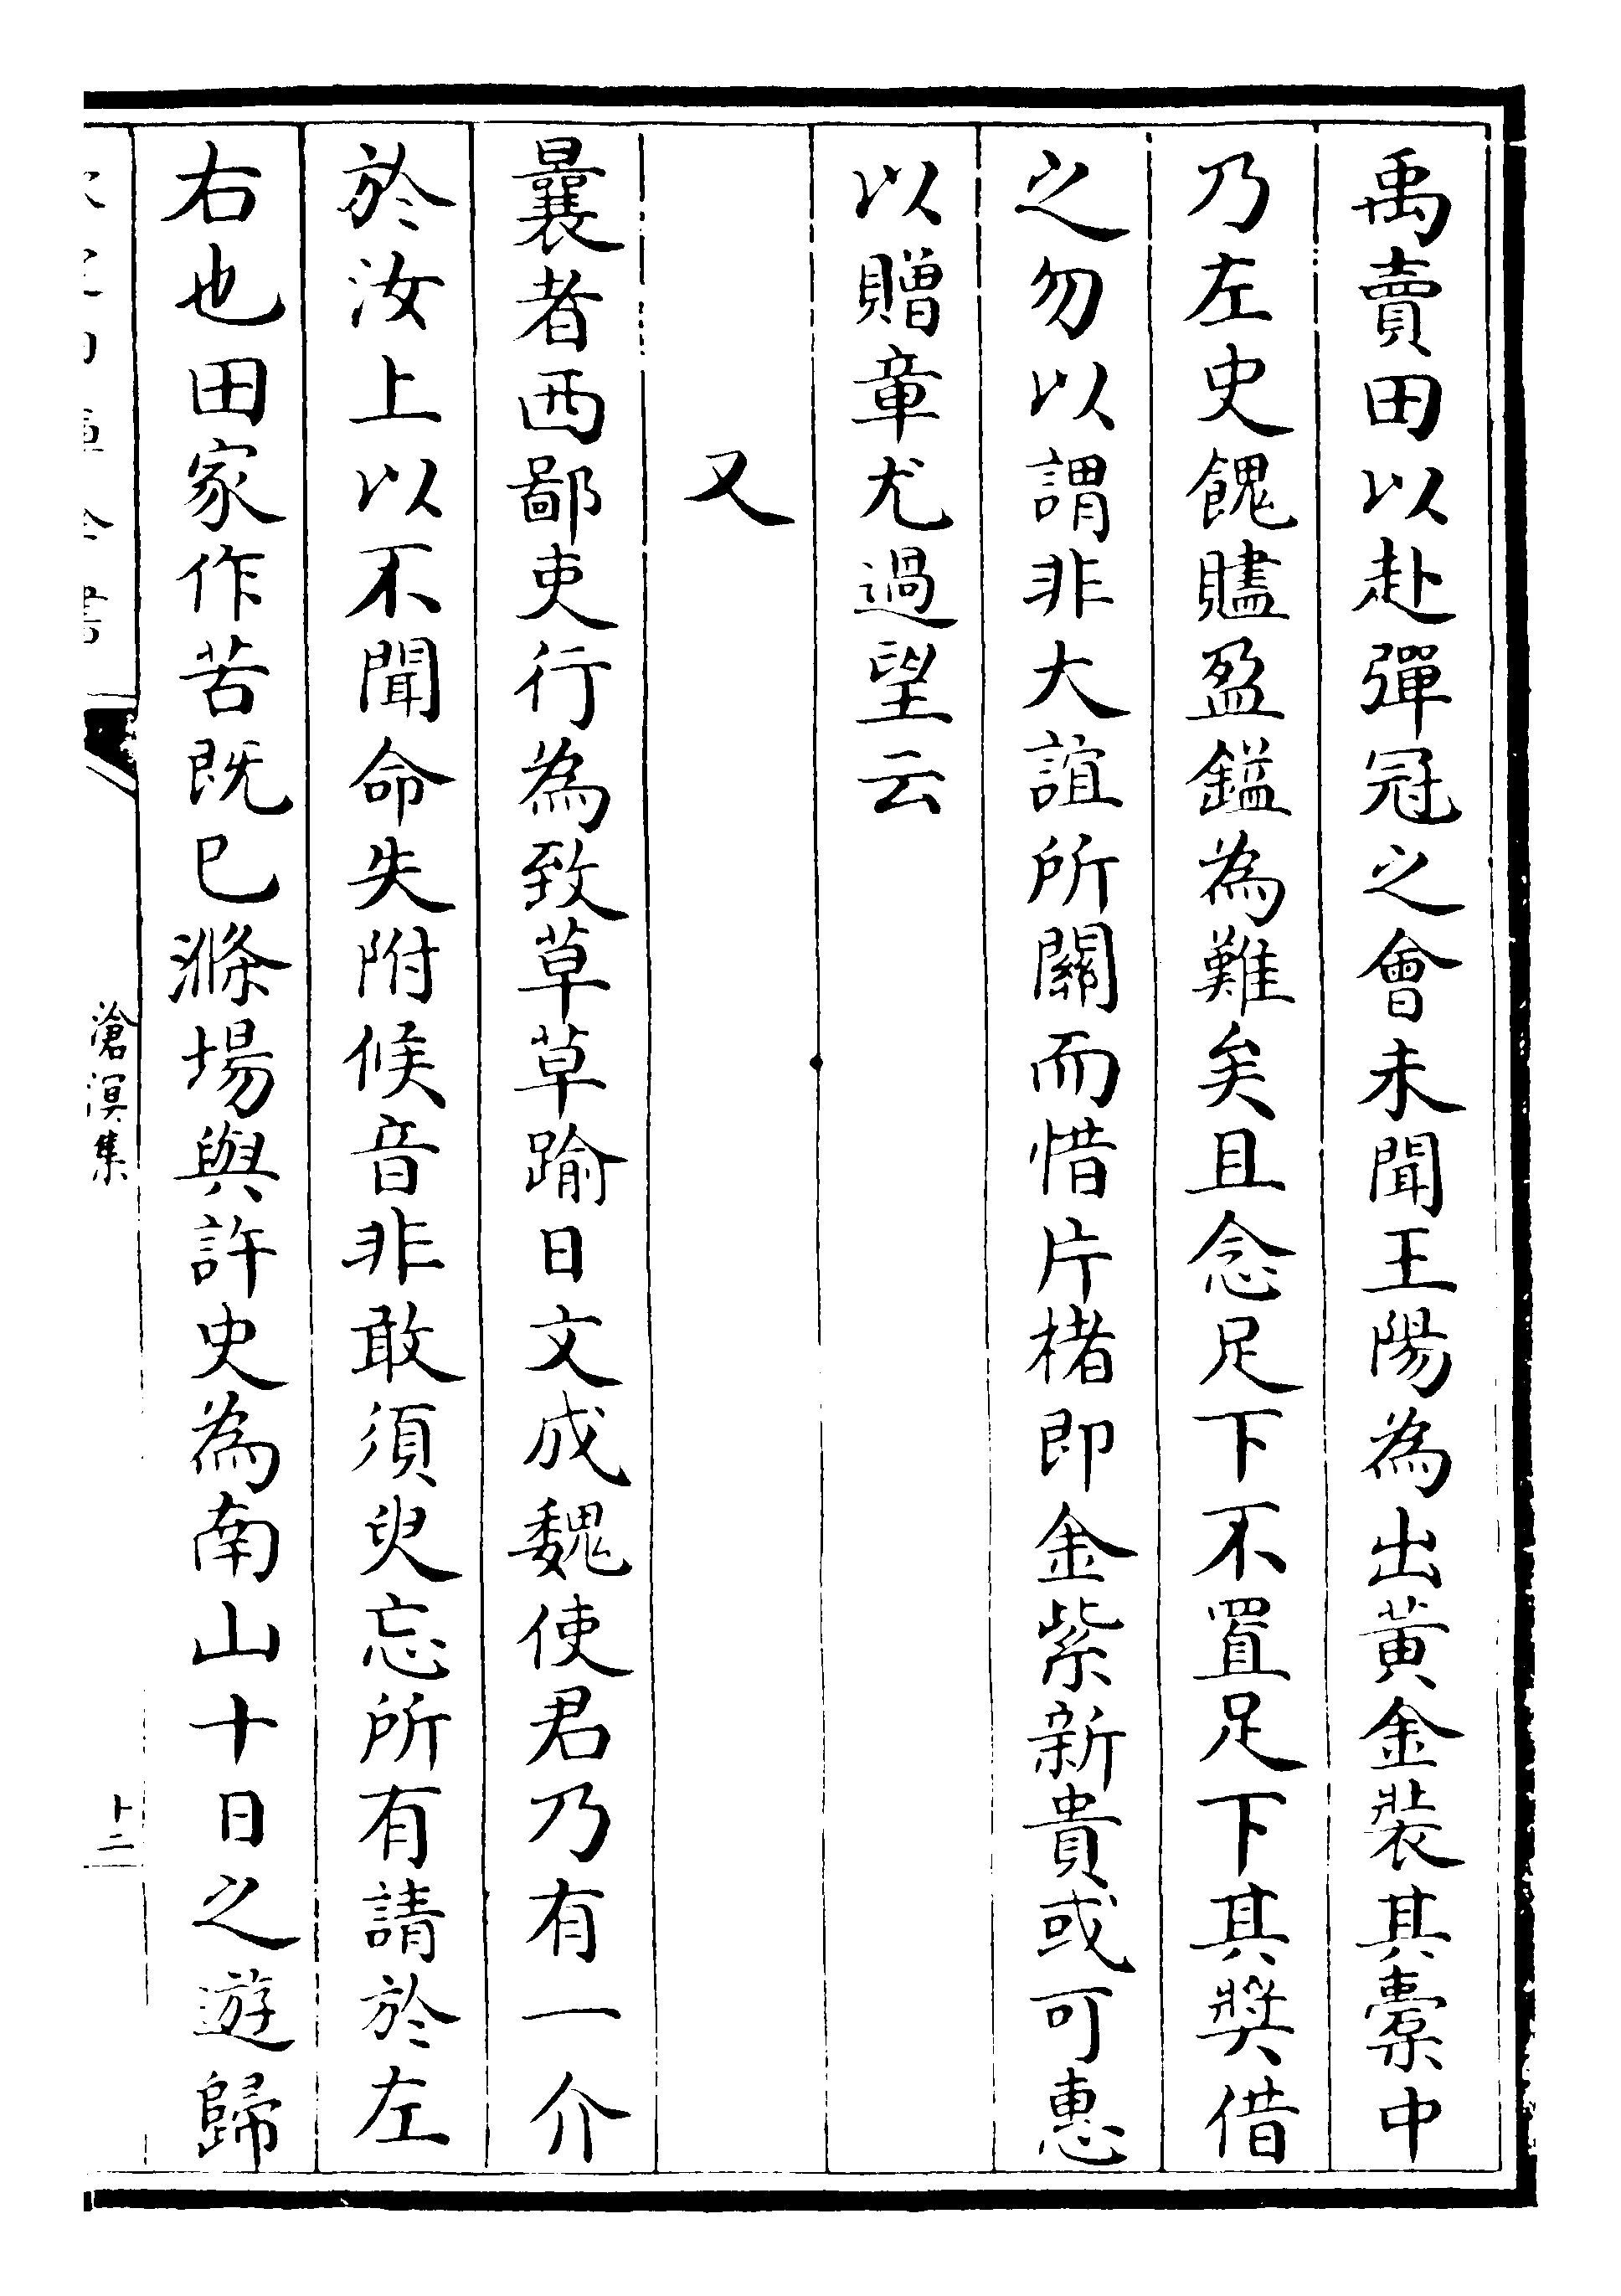 禹賣田以赴彈冠之會未聞王陽為出黄金裝其櫜中
乃左史餽贐盈鎰為難矣且念足下不置足下其奬借
之勿以謂非大誼所關而惜片楮即金紫新貴或可惠
以贈章尤過望云
又
曩者西鄙吏行為致草草踰日文成魏使君乃有一介
於汝上以不聞命失附候音非敢須臾忘所有請於左
右也田家作苦既已滌場與許史為南山十日之遊歸
滄溟集
十二